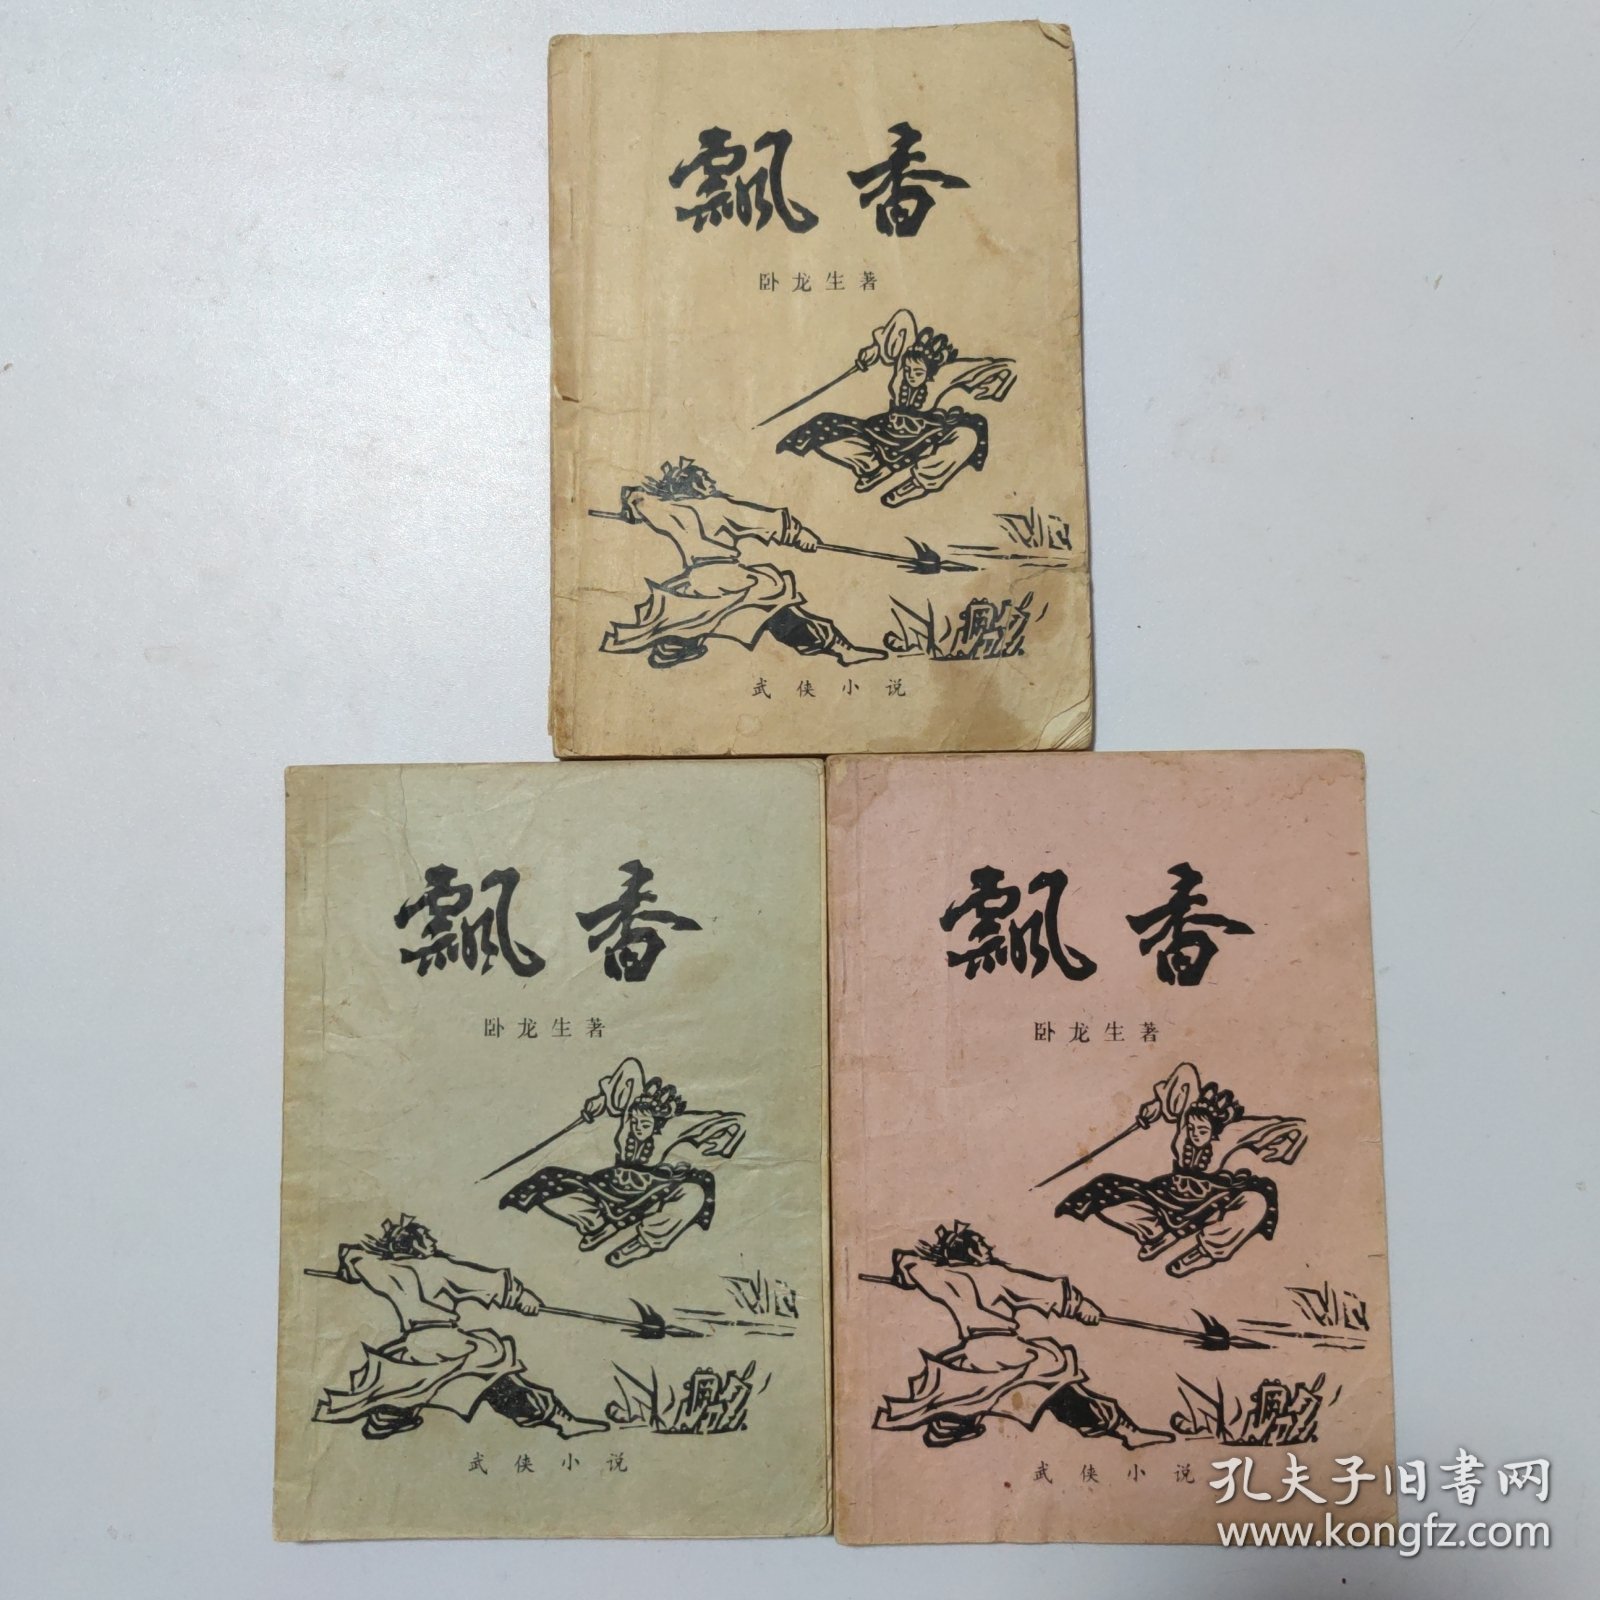 飘香
卧龙生著
武侠小说
飘香
卧龙生著
武侠小说
飘香
卧龙生著
武侠小说
孔夫子旧书网
www.kongfz.com